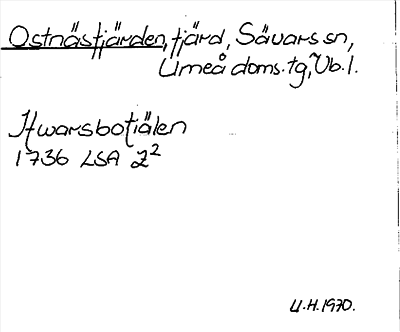 Ostnästjärden, fjärd, Sävars sn,
Umeå doms.tg, Vb.l.
Ifwarsbotiälen
1736 LSA Z²
U.H. 1970.